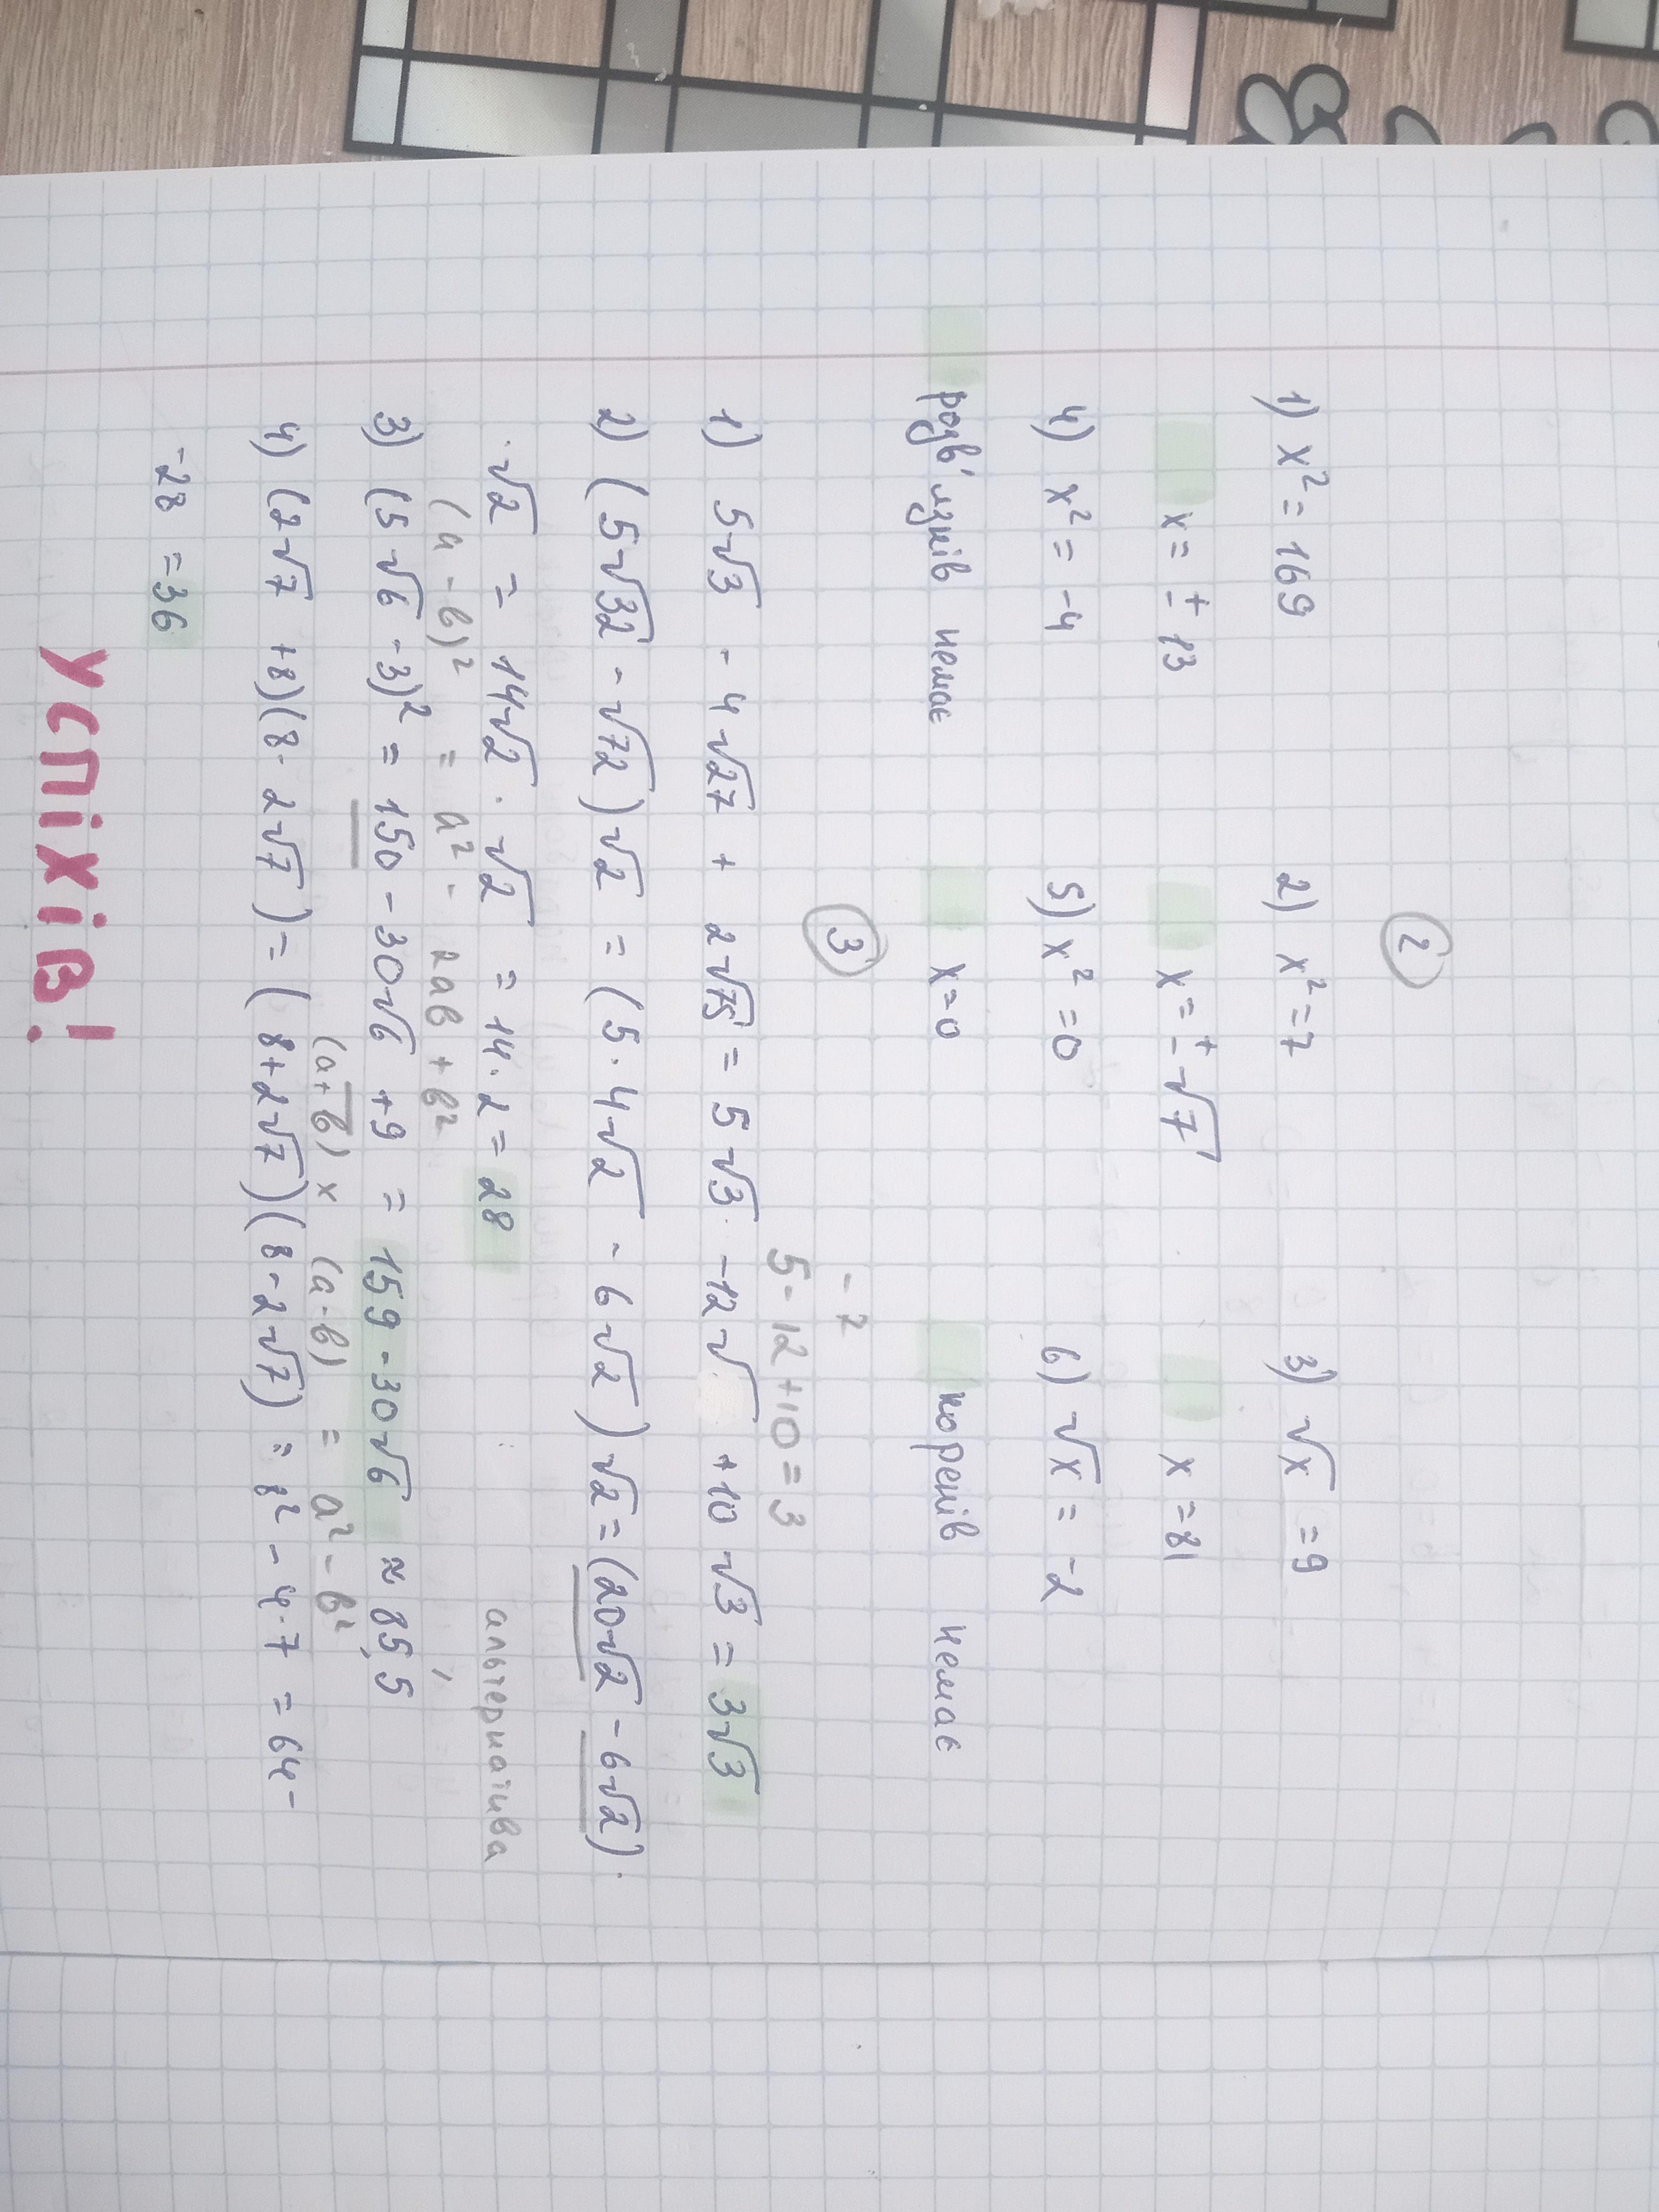 ②
1) x² = 169 2) x² = 7 3) √x = 9
x = ± 13 x = ± √7 x = 81
4) x² = -4 5) x² = 0 6) √x = -2
розв'язків немає x = 0 коренів немає
③
- 7
5 - 12 + 10 = 3
1) 5√3 - 4√27 + 2√75 = 5√3 - 12√ + 10√3 = 3√3
2) (5√32 - √72)√2 = (5 · 4√2 - 6√2)√2 = (20√2 - 6√2) ·
· √2 = 14√2 · √2 = 14 · 2 = 28 альтернатива
(a - b)² = a² - 2ab + b²
3) (5√6 - 3)² = 150 - 30√6 + 9 = 159 - 30√6 ≈ 85,5
(a + b) x (a - b) = a² - b²
4) (2√7 + 8)(8 - 2√7) = (8 + 2√7)(8 - 2√7) = 8² - 4 · 7 = 64 -
-28 = 36
УСПІХІВ!